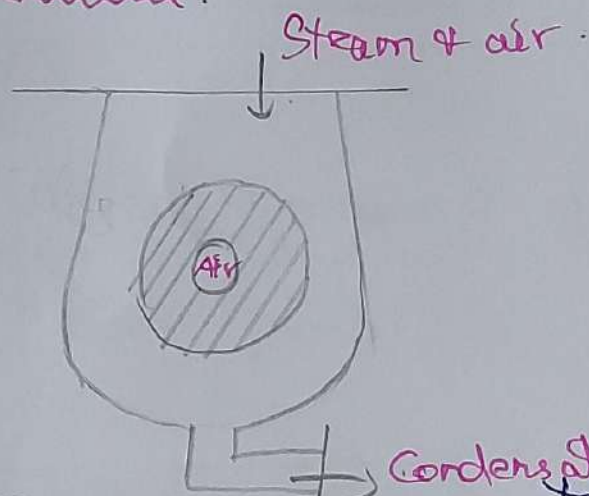 Steam & air.
Air
Condensa